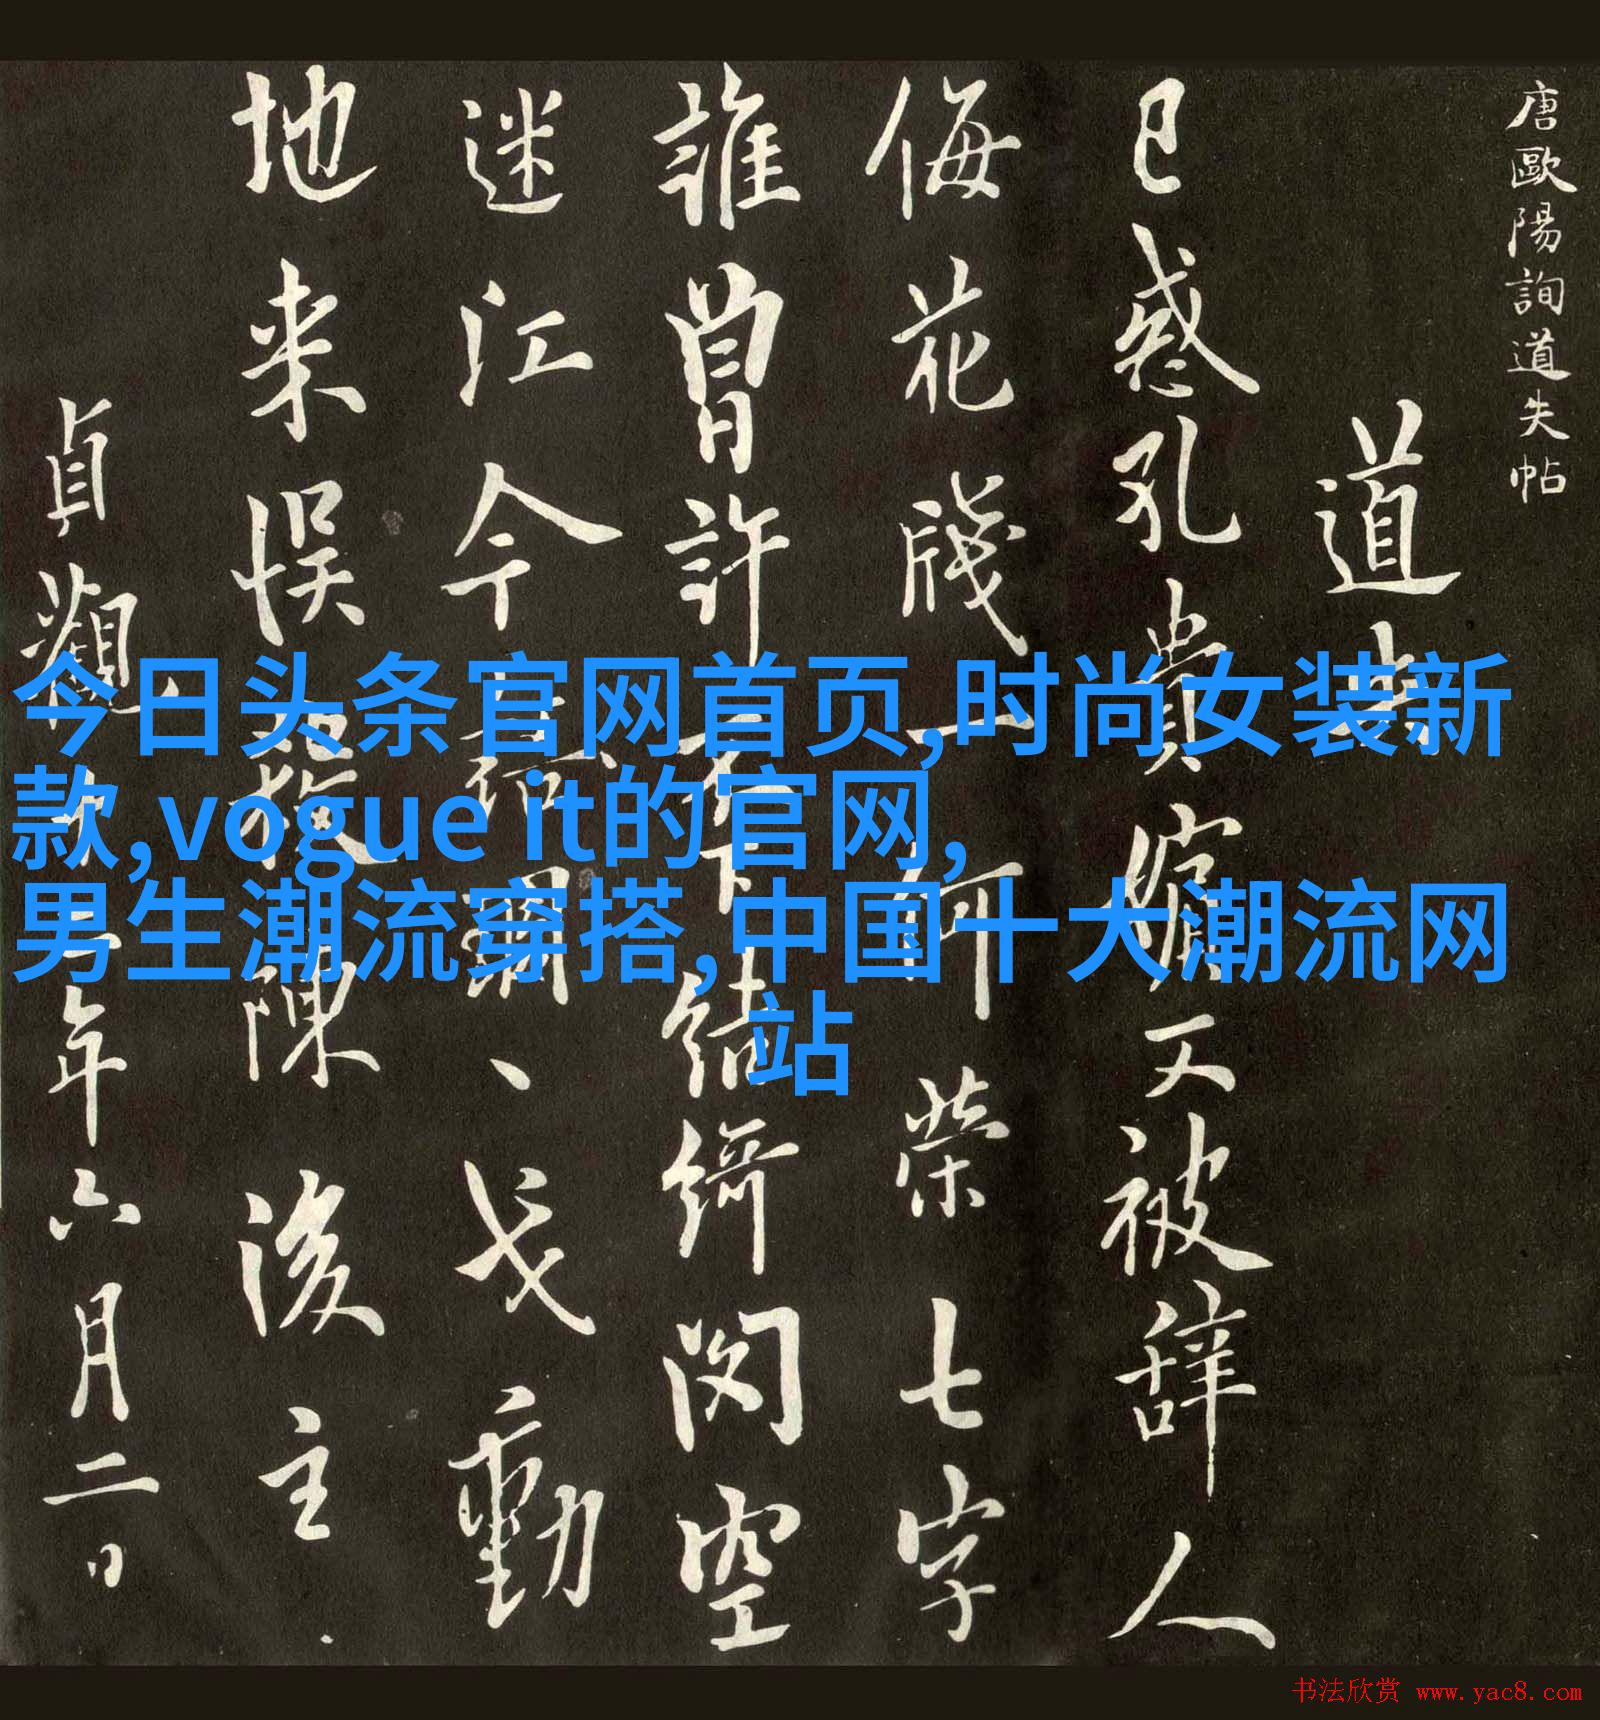 唐歐陽詢道失帖
道失
已惑孔貴嬪又被辭人
侮花牋一何榮七字
誰曾許不下結綺閃空
迷江令
戈動
地来悮
陳後主
貞觀
年六月二日
今日头条官网首页,时尚女装新
款,vogue it的官网,
男生潮流穿搭,中国十大潮流网
站
书法欣赏 www.yac8.com